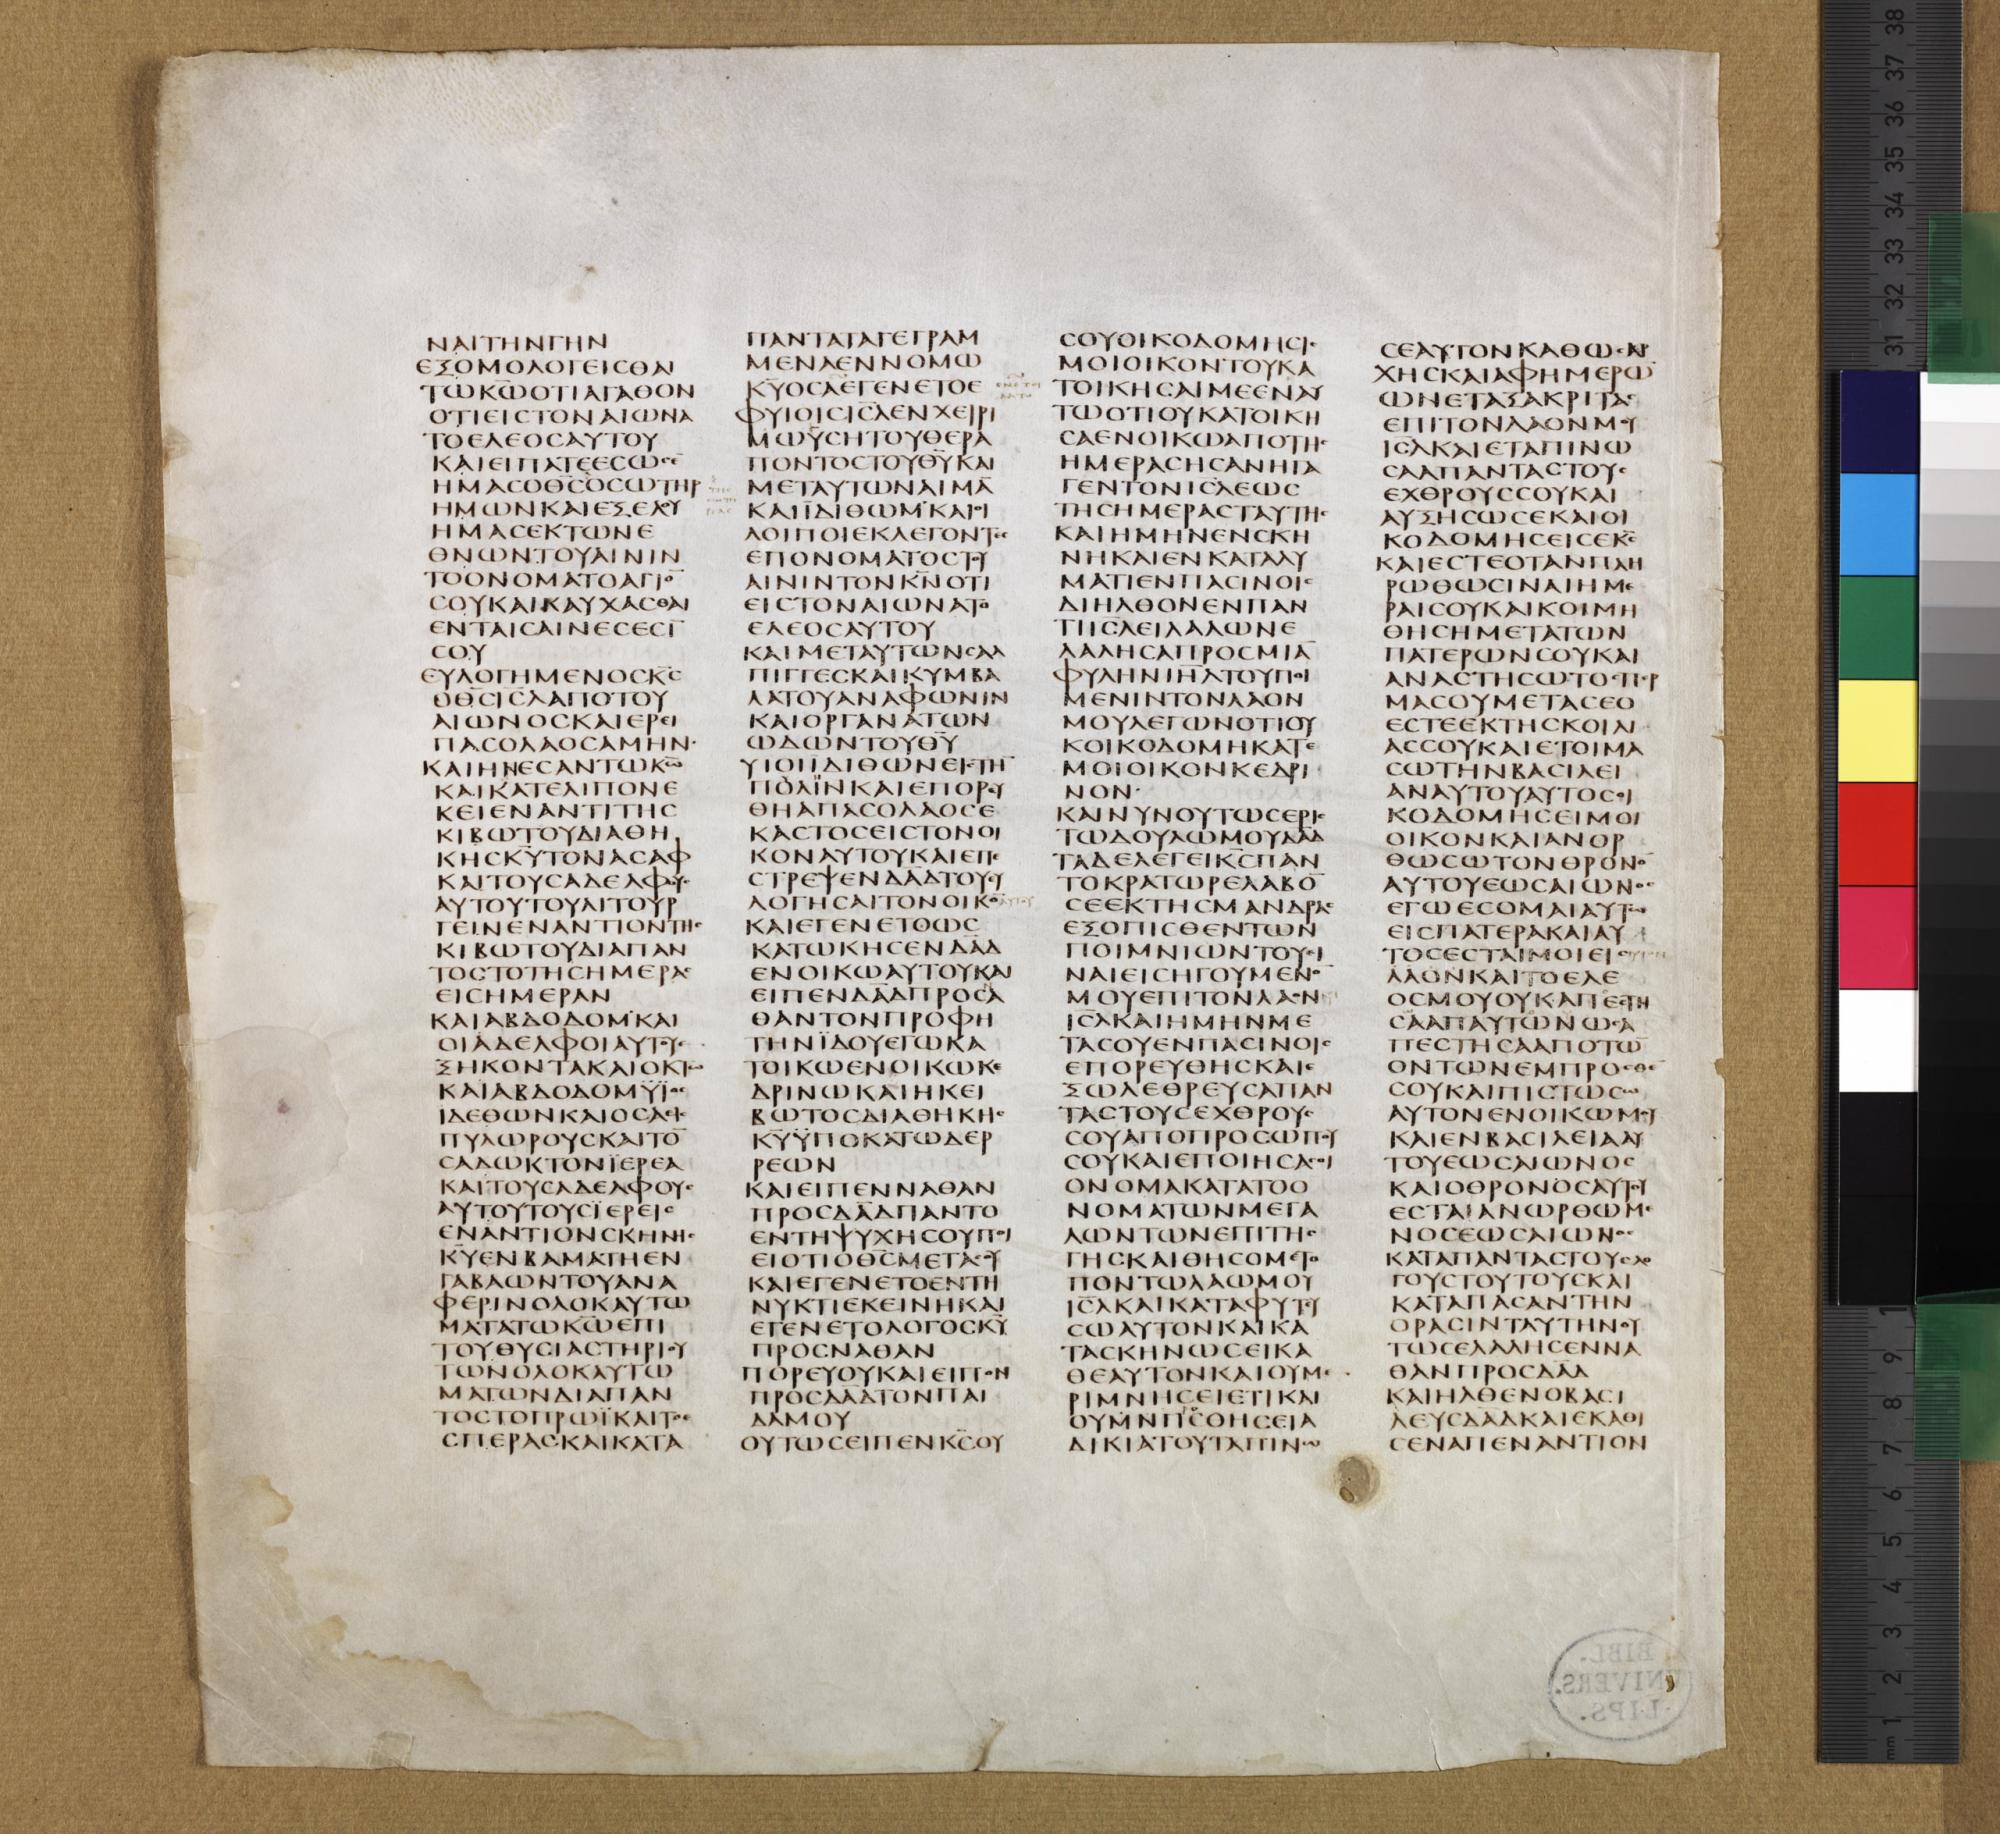 ΝΑΙΤΗΝΓΗΝ
ΕΞΟΜΟΛΟΓΕΙϹΘΑΙ
ΤΩΚ̅Ω̅ΟΤΙΑΓΑΘΟΝ
ΟΤΙΕΙϹΤΟΝΑΙΩΝΑ
ΤΟΕΛΕΟϹΑΥΤΟΥ
ΚΑΙΕΙΠΑΤΕ
ΗΜΑϹΟΘ̅Ϲ̅ΟϹΩΤΗΡ
ΗΜΩΝΚΑΙΕΞΕΛΟΥ
ΗΜΑϹΕΚΤΩΝΕ
ΘΝΩΝΤΟΥΑΙΝΙΝ
ΤΟΟΝΟΜΑΤΟΑΓΙΟ̅
ϹΟΥΚΑΙΚΑΥΧΑϹΘΑΙ
ΕΝΤΑΙϹΑΙΝΕϹΕϹΙ̅
ϹΟΥ
ΕΥΛΟΓΗΜΕΝΟϹΚ̅Ϲ̅
ΟΘ̅Ϲ̅Ι̅Ϲ̅Λ̅ΑΠΟΤΟΥ
ΑΙΩΝΟϹΚΑΙΕΡΕΙ
ΠΑϹΟΛΑΟϹΑΜΗΝ·
ΚΑΙΗΝΕϹΑΝΤΩΚ̅Ω̅
ΚΑΙΚΑΤΕΛΙΠΟΝΕ
ΚΕΙΕΝΑΝΤΙΤΗϹ
ΚΙΒΩΤΟΥΔΙΑΘΗ
ΚΗϹΚ̅Υ̅ΤΟΝΑϹΑΦ
ΚΑΙΤΟΥϹΑΔΕΛΦΟΥϹ
ΑΥΤΟΥΤΟΥΛΙΤΟΥΡ
ΓΕΙΝΕΝΑΝΤΙΟΝΤΗϹ
ΚΙΒΩΤΟΥΔΙΑΠΑΝ
ΤΟϹΤΟΤΗϹΗΜΕΡΑϹ
ΕΙϹΗΜΕΡΑΝ
ΚΑΙΑΒΔΟΔΟΜΚΑΙ
ΟΙΑΔΕΛΦΟΙΑΥΤΟΥ
ΞΗΚΟΝΤΑΚΑΙΟΚΤΩ
ΚΑΙΑΒΔΟΔΟΜΫΪΟϹ
ΙΔΕΘΩΝΚΑΙΟϹΑ
ΠΥΛΩΡΟΥϹΚΑΙΤΟ̅
ϹΑΔΩΚΤΟΝΪΕΡΕΑ
ΚΑΙΤΟΥϹΑΔΕΛΦΟΥϹ
ΑΥΤΟΥΤΟΥϹΪΕΡΕΙϹ
ΕΝΑΝΤΙΟΝϹΚΗΝΗϹ
Κ̅Υ̅ΕΝΒΑΜΑΤΗΕΝ
ΓΑΒΑΩΝΤΟΥΑΝΑ
ΦΕΡΙΝΟΛΟΚΑΥΤΩ
ΜΑΤΑΤΩΚ̅Ω̅ΕΠΙ
ΤΟΥΘΥϹΙΑϹΤΗΡΙΟΥ
ΤΩΝΟΛΟΚΑΥΤΩ
ΜΑΤΩΝΔΙΑΠΑΝ
ΤΟϹΤΟΠΡΩΪΚΑΙΤΟ
ϹΠΕΡΑϹΚΑΙΚΑΤΑ
ΠΑΝΤΑΤΑΓΕΓΡΑΜ
ΜΕΝΑΕΝΝΟΜΩ
Κ̅Υ̅ΟϹΑΕΓΕΝΕΤΟΕ
ΦΥΙΟΙϹΙ̅Ϲ̅Λ̅ΕΝΧΕΙΡΙ
ΜΩΫϹΗΤΟΥΘΕΡΑ
ΠΟΝΤΟϹΤΟΥΘ̅Υ̅ΚΑΙ
ΜΕΤΑΥΤΩΝΑΙΜΑ̅
ΚΑΙΪΔΙΘΩΜΚΑΙΟΙ
ΛΟΙΠΟΙΕΚΛΕΓΟΝΤΕϹ
ΕΠΟΝΟΜΑΤΟϹΤΟΥ
ΑΙΝΙΝΤΟΝΚ̅Ν̅ΟΤΙ
ΕΙϹΤΟΝΑΙΩΝΑΤΟ
ΕΛΕΟϹΑΥΤΟΥ
ΚΑΙΜΕΤΑΥΤΩΝϹΑΛ
ΠΙΓΓΕϹΚΑΙΚΥΜΒΑ
ΛΑΤΟΥΑΝΑΦΩΝΙΝ
ΚΑΙΟΡΓΑΝΑΤΩΝ
ΩΔΩΝΤΟΥΘ̅Υ̅
ΥΙΟΙΪΔΙΘΩΝΕΙϹΤΗ̅
ΠΥΛΗΝΚΑΙΕΠΟΡΕΥ
ΘΗΑΠΑϹΟΛΑΟϹΕ
ΚΑϹΤΟϹΕΙϹΤΟΝΟΙ
ΚΟΝΑΥΤΟΥΚΑΙΕΠΕ
ϹΤΡΕΨΕΝΔΑ̅Δ̅ΤΟΥΕΥ
ΛΟΓΗϹΑΙΤΟΝΟΙΚΟ̅
ΚΑΙΕΓΕΝΕΤΟΩϹ
ΚΑΤΩΚΗϹΕΝΔΑ̅Δ̅
ΕΝΟΙΚΩΑΥΤΟΥΚΑΙ
ΕΙΠΕΝΔΑ̅Δ̅ΠΡΟϹΝΑ
ΘΑΝΤΟΝΠΡΟΦΗ
ΤΗΝΪΔΟΥΕΓΩΚΑ
ΤΟΙΚΩΕΝΟΙΚΩΚΕ
ΔΡΙΝΩΚΑΙΗΚΕΙ
ΒΩΤΟϹΔΙΑΘΗΚΗϹ
Κ̅Υ̅ΫΠΟΚΑΤΩΔΕΡ
ΡΕΩΝ
ΚΑΙΕΙΠΕΝΝΑΘΑΝ
ΠΡΟϹΔΑ̅Δ̅ΠΑΝΤΟ
ΕΝΤΗΨΥΧΗϹΟΥΠΟΙ
ΕΙΟΤΙΟΘ̅Ϲ̅ΜΕΤΑϹΟΥ
ΚΑΙΕΓΕΝΕΤΟΕΝΤΗ
ΝΥΚΤΙΕΚΕΙΝΗΚΑΙ
ΕΓΕΝΕΤΟΛΟΓΟϹΚ̅Υ̅
ΠΡΟϹΝΑΘΑΝ
ΠΟΡΕΥΟΥΚΑΙΕΙΠΟΝ
ΠΡΟϹΔΑ̅Δ̅ΤΟΝΠΑΙ
ΔΑΜΟΥ
ΟΥΤΩϹΕΙΠΕΝΚ̅Ϲ̅ΟΥ
ϹΟΥΟΙΚΟΔΟΜΗϹΙϹ
ΜΟΙΟΙΚΟΝΤΟΥΚΑ
ΤΟΙΚΗϹΑΙΜΕΕΝΑΥ
ΤΩΟΤΙΟΥΚΑΤΟΙΚΗ
ϹΑΕΝΟΙΚΩΑΠΟΤΗϹ
ΗΜΕΡΑϹΗϹΑΝΗΓΑ
ΓΕΝΤΟΝΙ̅Ϲ̅Λ̅ΕΩϹ
ΤΗϹΗΜΕΡΑϹΤΑΥΤΗϹ
ΚΑΙΗΜΗΝΕΝϹΚΗ
ΝΗΚΑΙΕΝΚΑΤΑΛΥ
ΜΑΤΙΕΝΠΑϹΙΝΟΙϹ
ΔΙΗΛΘΟΝΕΝΠΑΝ
ΤΙΙ̅Ϲ̅Λ̅ΕΙΛΑΛΩΝΕ
ΛΑΛΗϹΑΠΡΟϹΜΙΑ̅
ΦΥΛΗΝΙ̅Η̅Λ̅ΤΟΥΠΟΙ
ΜΕΝΙΝΤΟΝΛΑΟΝ
ΜΟΥΛΕΓΩΝΟΤΙΟΥ
ΚΟΙΚΟΔΟΜΗΚΑΤΕ
ΜΟΙΟΙΚΟΝΚΕΔΡΙ
ΝΟΝ·
ΚΑΙΝΥΝΟΥΤΩϹΕΡΙϹ
ΤΩΔΟΥΛΩΜΟΥΔΑ̅Δ̅
ΤΑΔΕΛΕΓΕΙΚ̅Ϲ̅ΠΑΝ
ΤΟΚΡΑΤΩΡΕΛΑΒΟ̅
ϹΕΕΚΤΗϹΜΑΝΔΡΑϹ
ΕΞΟΠΙϹΘΕΝΤΩΝ
ΠΟΙΜΝΙΩΝΤΟΥΕΙ
ΝΑΙΕΙϹΗΓΟΥΜΕΝΟ̅
ΜΟΥΕΠΙΤΟΝΛΑΟΝ
Ι̅Ϲ̅Λ̅ΚΑΙΗΜΗΝΜΕ
ΤΑϹΟΥΕΝΠΑϹΙΝΟΙϹ
ΕΠΟΡΕΥΘΗϹΚΑΙΕ
ΞΩΛΕΘΡΕΥϹΑΠΑΝ
ΤΑϹΤΟΥϹΕΧΘΡΟΥϹ
ϹΟΥΑΠΟΠΡΟϹΩΠΟΥ
ϹΟΥΚΑΙΕΠΟΙΗϹΑϹΟΙ
ΟΝΟΜΑΚΑΤΑΤΟΟ
ΝΟΜΑΤΩΝΜΕΓΑ
ΛΩΝΤΩΝΕΠΙΤΗϹ
ΓΗϹΚΑΙΘΗϹΟΜΕΤΟ
ΠΟΝΤΩΛΑΩΜΟΥ
Ι̅Ϲ̅Λ̅ΚΑΙΚΑΤΑΦΥΤΕΥ
ϹΩΑΥΤΟΝΚΑΙΚΑ
ΤΑϹΚΗΝΩϹΕΙΚΑ
ΘΕΑΥΤΟΝΚΑΙΟΥΜΕ
ΡΙΜΝΗϹΕΙΕΤΙΚΑΙ
ΟΥΜΝΠϹΘΗϹΕΙΑ
ΔΙΚΙΑΤΟΥΤΑΠΙΝΩ
ϹΕΑΥΤΟΝΚΑΘΩϹΑΡ
ΧΗϹΚΑΙΑΦΗΜΕΡΩ̅
ΩΝΕΤΑΞΑΚΡΙΤΑϹ
ΕΠΙΤΟΝΛΑΟΝΜΟΥ
Ι̅Ϲ̅Λ̅ΚΑΙΕΤΑΠΙΝΩ
ϹΑΑΠΑΝΤΑϹΤΟΥϹ
ΕΧΘΡΟΥϹϹΟΥΚΑΙ
ΑΥΞΗϹΩϹΕΚΑΙΟΙ
ΚΟΔΟΜΗϹΕΙϹΕΚ̅Ϲ̅
ΚΑΙΕϹΤΕΟΤΑΝΠΛΗ
ΡΩΘΩϹΙΝΑΙΗΜΕ
ΡΑΙϹΟΥΚΑΙΚΟΙΜΗ
ΘΗϹΗΜΕΤΑΤΩΝ
ΠΑΤΕΡΩΝϹΟΥΚΑΙ
ΑΝΑϹΤΗϹΩΤΟϹΠΕΡ
ΜΑϹΟΥΜΕΤΑϹΕΟ
ΕϹΤΕΕΚΤΗϹΚΟΙΛΙ
ΑϹϹΟΥΚΑΙΕΤΟΙΜΑ
ϹΩΤΗΝΒΑϹΙΛΕΙ
ΑΝΑΥΤΟΥΑΥΤΟϹΟΙ
ΚΟΔΟΜΗϹΕΙΜΟΙ
ΟΙΚΟΝΚΑΙΑΝΟΡ
ΘΩϹΩΤΟΝΘΡΟΝΟ̅
ΑΥΤΟΥΕΩϹΑΙΩΝΟϹ
ΕΓΩΕϹΟΜΑΙΑΥΤΩ
ΕΙϹΠΑΤΕΡΑΚΑΙΑΥ
ΤΟϹΕϹΤΑΙΜΟΙΕΙϹ
ΛΑΟΝΚΑΙΤΟΕΛΕ
ΟϹΜΟΥΟΥΚΑΠΕϹΤΗ
ϹΑΑΠΑΥΤΩΝΩϹΑ
ΠΕϹΤΗϹΑΑΠΟΤΩ̅
ΟΝΤΩΝΕΜΠΡΟϹΘΕ̅
ϹΟΥΚΑΙΠΙϹΤΩϹΩ
ΑΥΤΟΝΕΝΟΙΚΩΜΟΥ
ΚΑΙΕΝΒΑϹΙΛΕΙΑΑΥ
ΤΟΥΕΩϹΑΙΩΝΟϹ
ΚΑΙΟΘΡΟΝΟϹΑΥΤΟΥ
ΕϹΤΑΙΑΝΩΡΘΩΜΕ
ΝΟϹΕΩϹΑΙΩΝΟϹ
ΚΑΤΑΠΑΝΤΑϹΤΟΥϹΛΟ
ΓΟΥϹΤΟΥΤΟΥϹΚΑΙ
ΚΑΤΑΠΑϹΑΝΤΗΝ
ΟΡΑϹΙΝΤΑΥΤΗΝΟΥ
ΤΩϹΕΛΑΛΗϹΕΝΝΑ
ΘΑΝΠΡΟϹΔΑ̅Δ̅
ΚΑΙΗΛΘΕΝΟΒΑϹΙ
ΛΕΥϹΔΑ̅Δ̅ΚΑΙΕΚΑΘΙ
ϹΕΝΑΠΕΝΑΝΤΙΟΝ
BIBL.
UNIVERS.
LIPS.